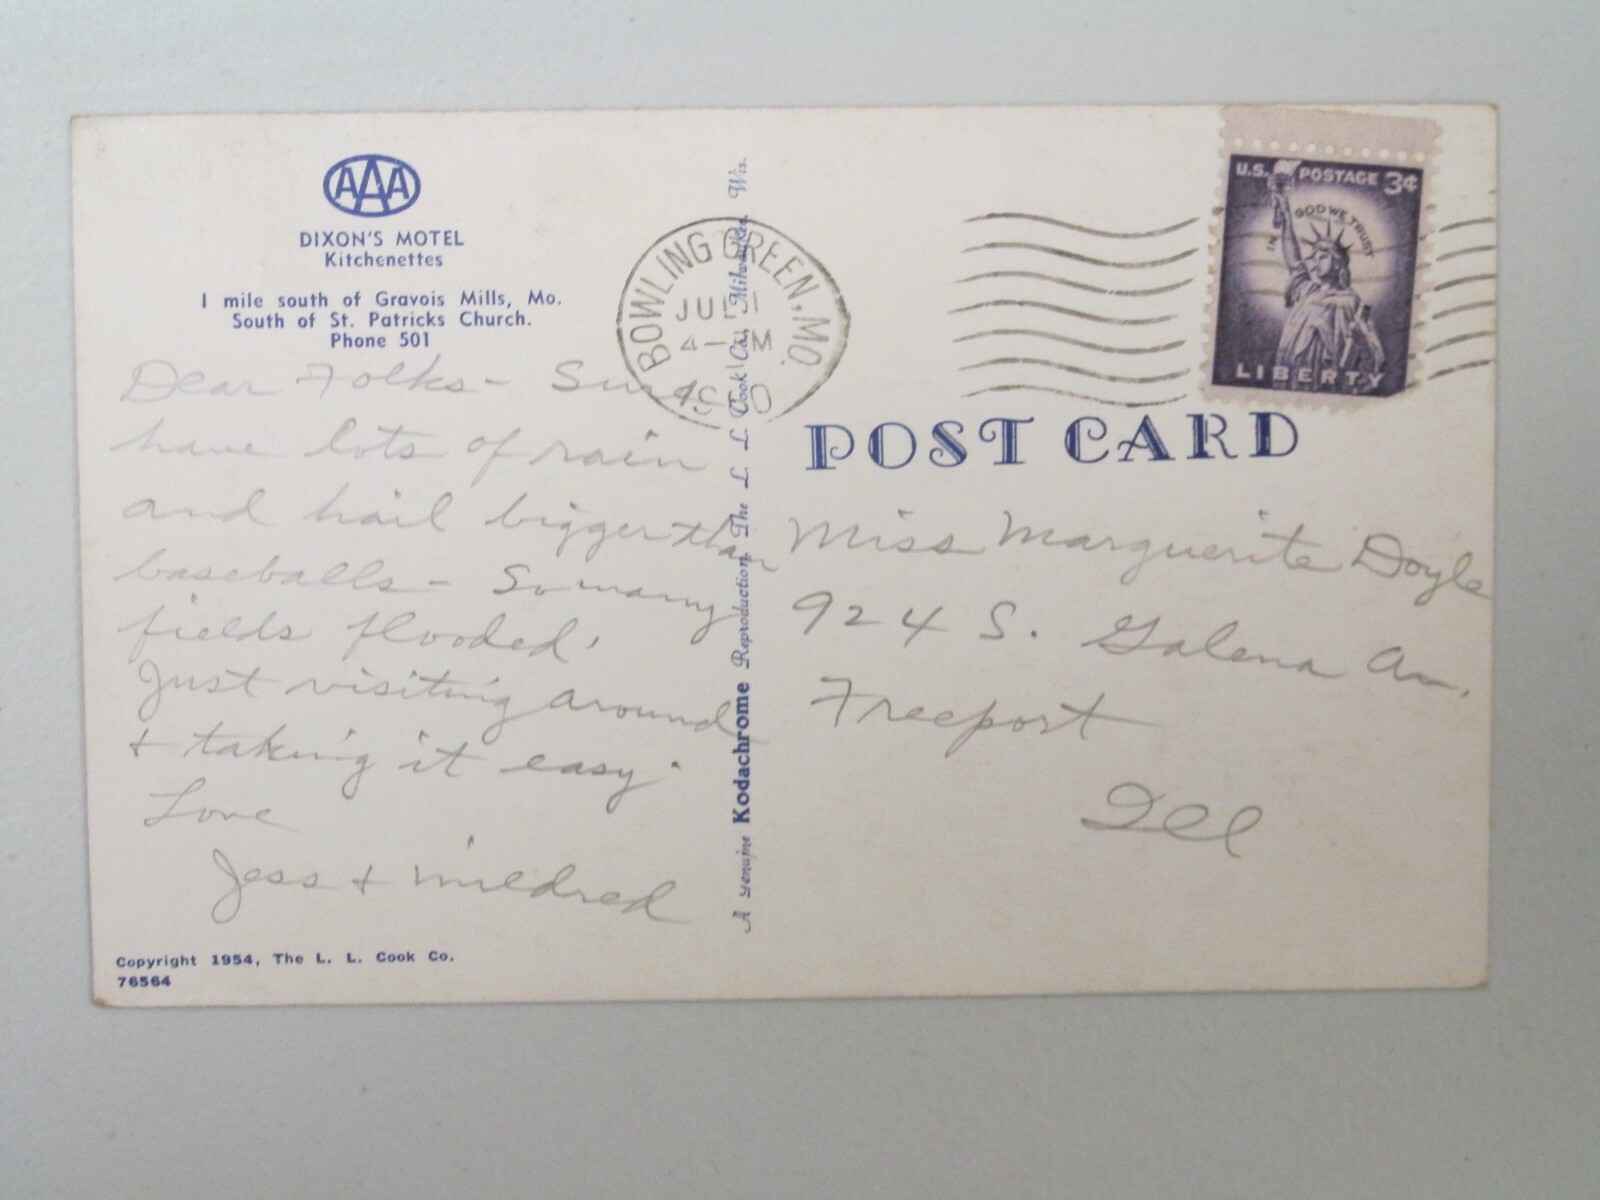 AAA
DIXON'S MOTEL
Kitchenettes
1 mile south of Gravois Mills, Mo.
South of St. Patricks Church.
Phone 501
Dear Folks - Sure
have lots of rain
and hail bigger than
baseballs - So many
fields flooded.
Just visiting around
+ taking it easy.
Love
Jess + Mildred
Copyright 1954, The L. L. Cook Co.
76564
A Genuine Kodachrome Reproduction, The L. L. Cook Co., Milwaukee, Wis.
BOWLING GREEN, MO.
JUL
4 - M
U.S. POSTAGE 3¢
IN GOD WE TRUST
LIBERTY
POST CARD
Miss Marguerite Doyle
924 S. Galena Av.
Freeport
Ill